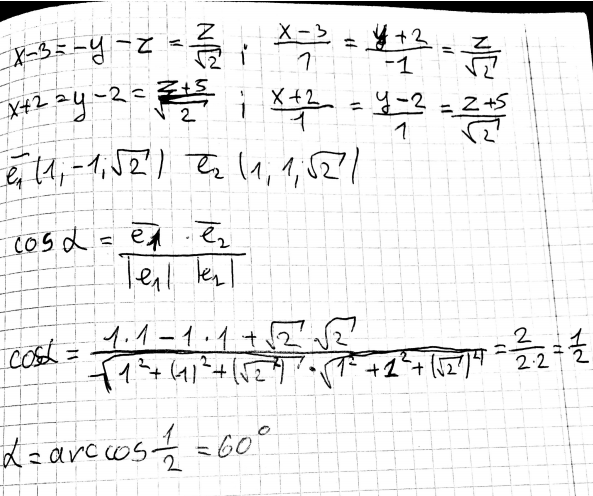 x-3=-y-z=z/√2 ; (x-3)/1=(y+2)/-1=z/√2
x+2=y-2=(z+5)/√2 ; (x+2)/1=(y-2)/1=(z+5)/√2
e̅₁(1,-1,√2) e̅₂(1,1,√2)
cosα=(e̅₁·e̅₂)/(|e₁| |e₂|)
cosα=(1·1-1·1+√2 √2)/(√(1²+(-1)²+(√2)²)·√(1²+1²+(√2)²))=2/(2·2)=1/2
α=arccos 1/2=60°